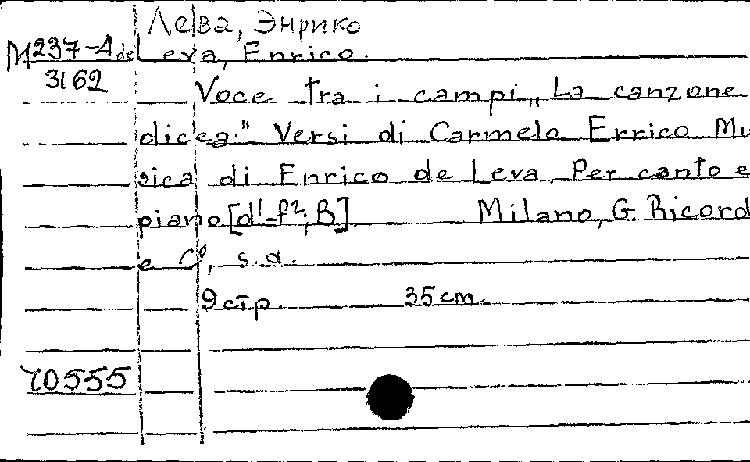 Лева, Энрико
М237-4 de Leva, Enrico.
3162
Voce tra i campi „La canzone
dicea." Versi di Carmelo Errico Mu
sica di Enrico de Leva. Per canto e
piano [d¹-f²; B] Milano, G. Ricord
e Cº, s.a.
9 стр. 35 cm.
70555